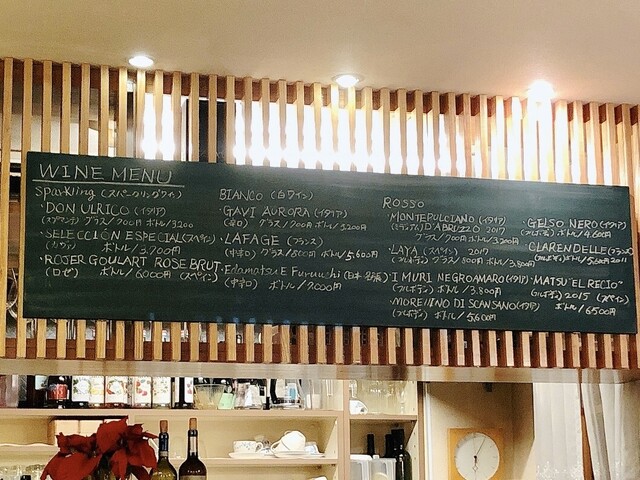 WINE MENU
Sparkling (スパークリングワイン)
・DON ULRICO (イタリア)
(スプマンテ) グラス/700円 ボトル/3,200
・SELECCIÓN ESPECIAL (スペイン)
(カヴァ) ボトル/3,700円
・ROJER GOULART ROSE BRUT
(ロゼ) ボトル/6000円 (スペイン)
BIANCO (白ワイン)
・GAVI AURORA (イタリア)
(辛口) グラス/700円 ボトル/3,200円
・LAFAGE (フランス)
(中辛口) グラス/800円 ボトル/5,600円
・Edamatsu E Furuichi (日本・名張)
(中辛口) ボトル/7000円
ROSSO
・MONTEPULCIANO (イタリア)
(ミディアム) D'ABRUZZO 2017
グラス/700円 ボトル/3,200円
・LAYA (スペイン) 2017
(フルボディ) グラス/800円 ボトル/3,800円
・I MURI NEGROAMARO (イタリア)
(フルボディ) ボトル/3,800円
・MORELLINO DI SCANSANO (イタリア)
(フルボディ) ボトル/5,600
・GELSO NERO (イタリア)
(フルボディ) ボトル/4,600円
・CLARENDELLE (フランス)
(フルボディ) ボトル/5,600円 2011
・MATSU "EL RECIO"
(フルボディ) 2015 (スペイン)
ボトル/6500円